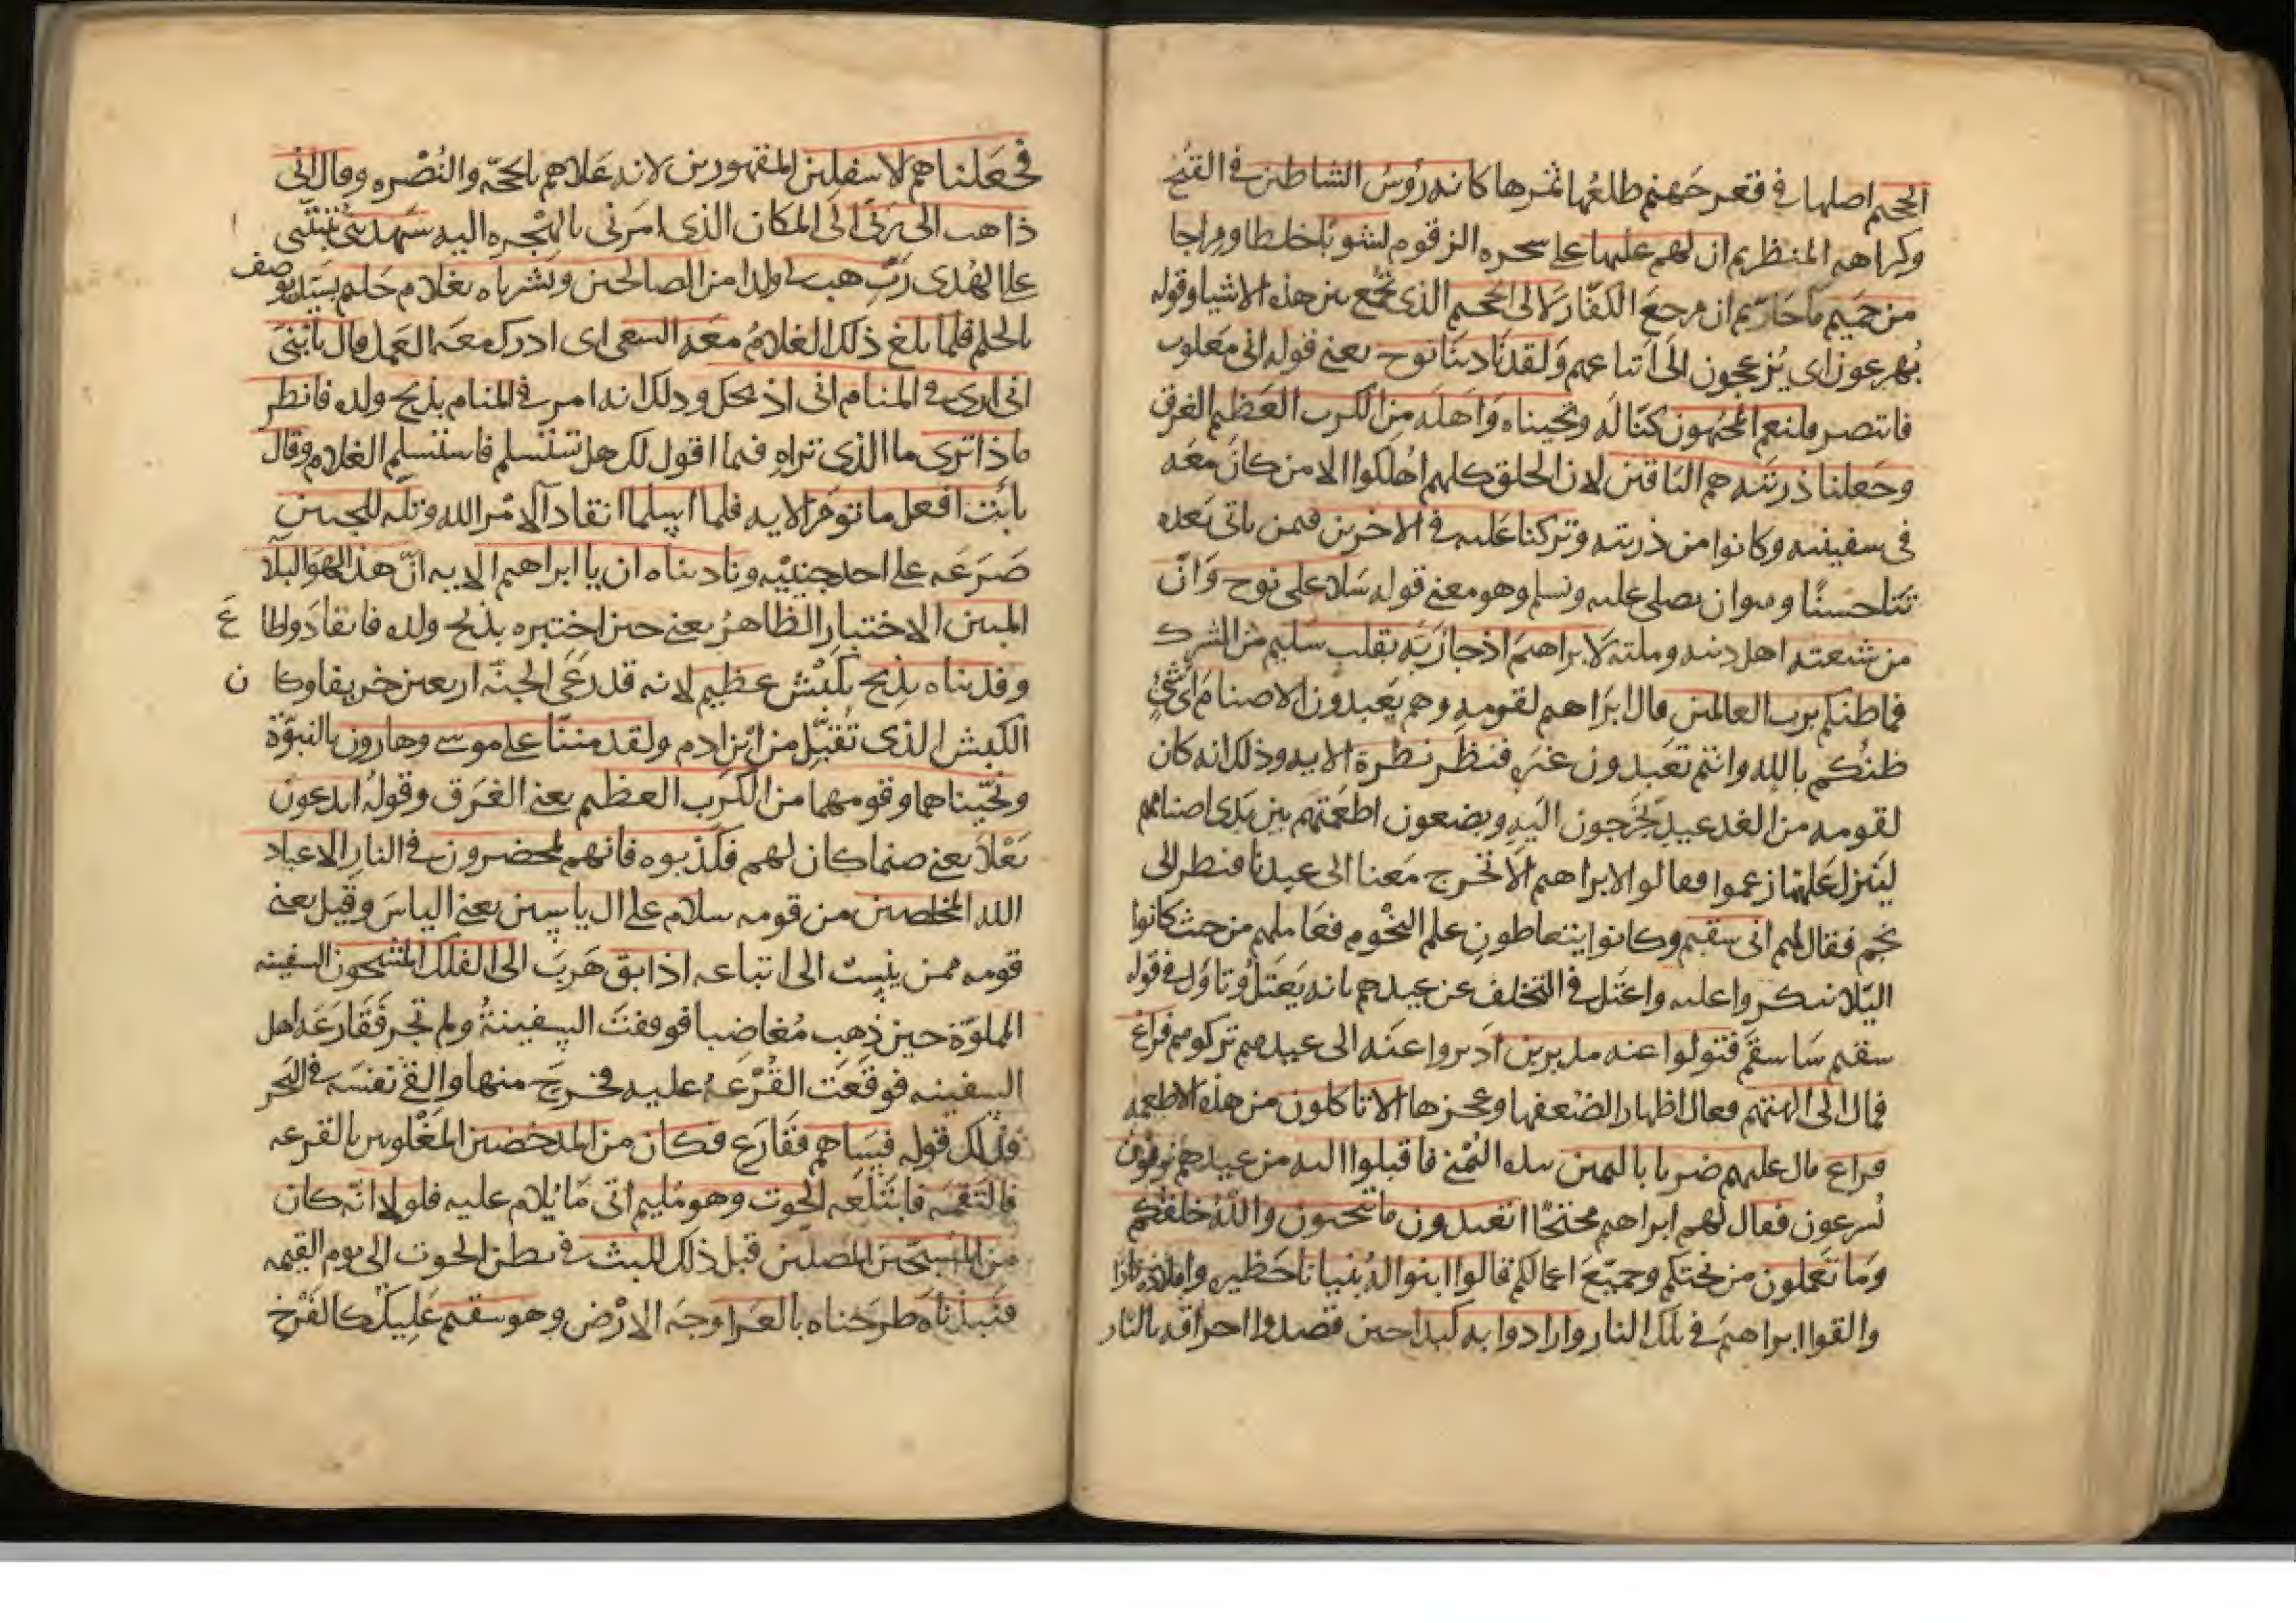 الجحيم اصلها في قعر جهنم طلعها ثمرها كانه رؤس الشياطين في القبح
وكراهه المنظر ثم ان لهم عليها على شجره الزقوم لشوبًا خلطا ومزاجا
من حميم ماحارثم ان مرجع الكفّار لا الى الجحيم الذى تجمع بين هذه الاشيا وقوله
يُهرعون اى يُزعجون الى اتباعهم ولقد نادينا نوح يعنى قوله انى مغلوب
فانتصر فلنعم المجيبون كنّا له ونجيناه واهله من الكرب العظيم الغرق
وجعلنا ذريته هم الباقين لان الخلق كلهم اُهلكوا الا من كان معه
فى سفينته وكانوا من ذريته وتركنا عليه فى الاخرين فيمن ياتى بعده
ثنا حسنًا وهوان يصلى عليه ويسلم وهو معنى قوله سلام على نوح وانّ
من شيعته اهل دينه وملته لابراهيم اذ جا ربّه بقلب سليم من الشرك
فما ظنكم برب العالمين قال ابراهيم لقومه وهم يعبدون الاصنام اى شئٍ
ظنُكم بالله وانتم تعبدون غيره فنظر نظرة الايه وذلك انه كان
لقومه من الغد عيد يخرجون اليه ويضعون اطعمتهم بين يدى اصنامهم
لينزل عليها زعموا فقالوا لابراهيم الا تخرج معنا الى عيدنا فنظر الى
نجم فقال لهم انى سقيم وكانوا يتعاطون علم النجوم فعاملهم من حيث كانوا
اليّلا ينكروا عليه واعتل فى التخلف عن عيدهم بانه يعتلُ وتاوّل فى قوله
سقيم سَاسقم فتولوا عنه مدبرين ادبروا عنه الى عيدهم تركوهم فراغ
فمال الى الهتهم فقال اظهار الضعفها وعجزها الا تاكلون من هذه الاطعمه
فراغ مال عليهم ضربا باليمين بيده اليُمْنى فاقبلوا اليه من عيدهم يزفّون
يُسرعون فقال لهم ابراهيم محتجًا اتعبدون ما تنحتون واللهُ خلقكم
وما تعملون من نحتكم وجميع اعمالكم قالوا ابنوا له بُنيانا حظيره واملاوه نارًا
والقوا ابراهيم فى تلك النار وارادوا به كيدا حين قصدوا احراقه بالنار
فجعلناهم الاسفلين المقهورين لانه علاهم بالحجّه والنُصْره وقال انى
ذاهب الى ربى الى المكان الذى امرنى بالهجره اليه سيهدينى يثبتنى
على الهُدى ربّ هب لى ولدا من الصالحين وبشرناه بغلام حليم سيّد يوصف
بالحلم فلما بلغ ذلك الغلامُ معه السعى اى ادرك معه العمل قال يا بُنىَّ
انى ارى فى المنام انى اذبحك وذلك انه امر فى المنام بذبح ولده فانظر
ماذا ترى ما الذى تراه فيما اقول لك هل تستسلم فاستسلم الغلام وقال
يا أبت افعل ما تومر الايه فلما اسلما انقادا لامْر الله وتلّه للجبين
صَرَعه على احد جنبيْه وناديناه ان يا ابراهيم الايه انّ هذا لهو البلا
المبين الاختبار الظاهرُ يعنى حين اختبره بذبح ولده فانقاد واطا ع
وفديناه بذبح بكَبْش عظيم لانه قد رعى الجنّه اربعين خريفا وكا ن
الكبش الذى تُقبّل من ابْن ادم ولقد مننّا على موسى وهارون بالنبوّة
ونجّيناهما وقومهما من الكرب العظيم يعنى الغرق وقولُه اتدعون
بعْلا يعنى صنما كان لهم فكذّبوه فانهم لمحضرون فى النارِ الا عباد
الله المخلصين من قومه سلام على ال ياسين يعنى الياسَ وقيل يعنى
قومه ممن ينسب الى اتباعه اذ ابق هَرَبَ الى الفلك المشحون السفينه
المملوّة حين ذهب مُغاضبا فوقفت السفينةُ ولم تجر فقارعه اهل
السفينه فوقعت القُرْعهُ عليه فخرج منها والقى نفسَه فى البحر
فذلك قوله فسَاهم فقَارع فكان من المدحضين المغلوبين بالقرعه
فالتقمه فابْتلعه الحوت وهو مُليم اتى ما يُلام عليه فلولا انّه كان
من المسبّحين المصلين قبل ذلك للبث فى بطن الحوت الى يوم القيمه
فنبذناه طرحناه بالعرا وجه الارْض وهو سقيم عليل كالفرْخ